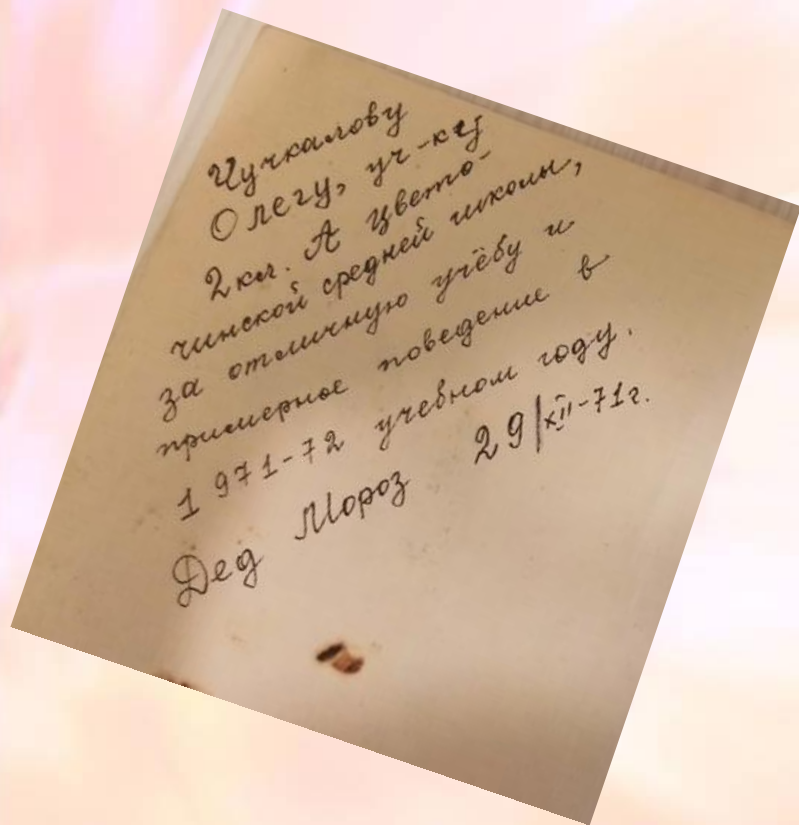 Чучкалову
Олегу, уч-ку
2 кл. А Цвето-
чинской средней школы,
за отличную учёбу и
примерное поведение в
1971-72 учебном году.
Дед Мороз 29/XII-71г.